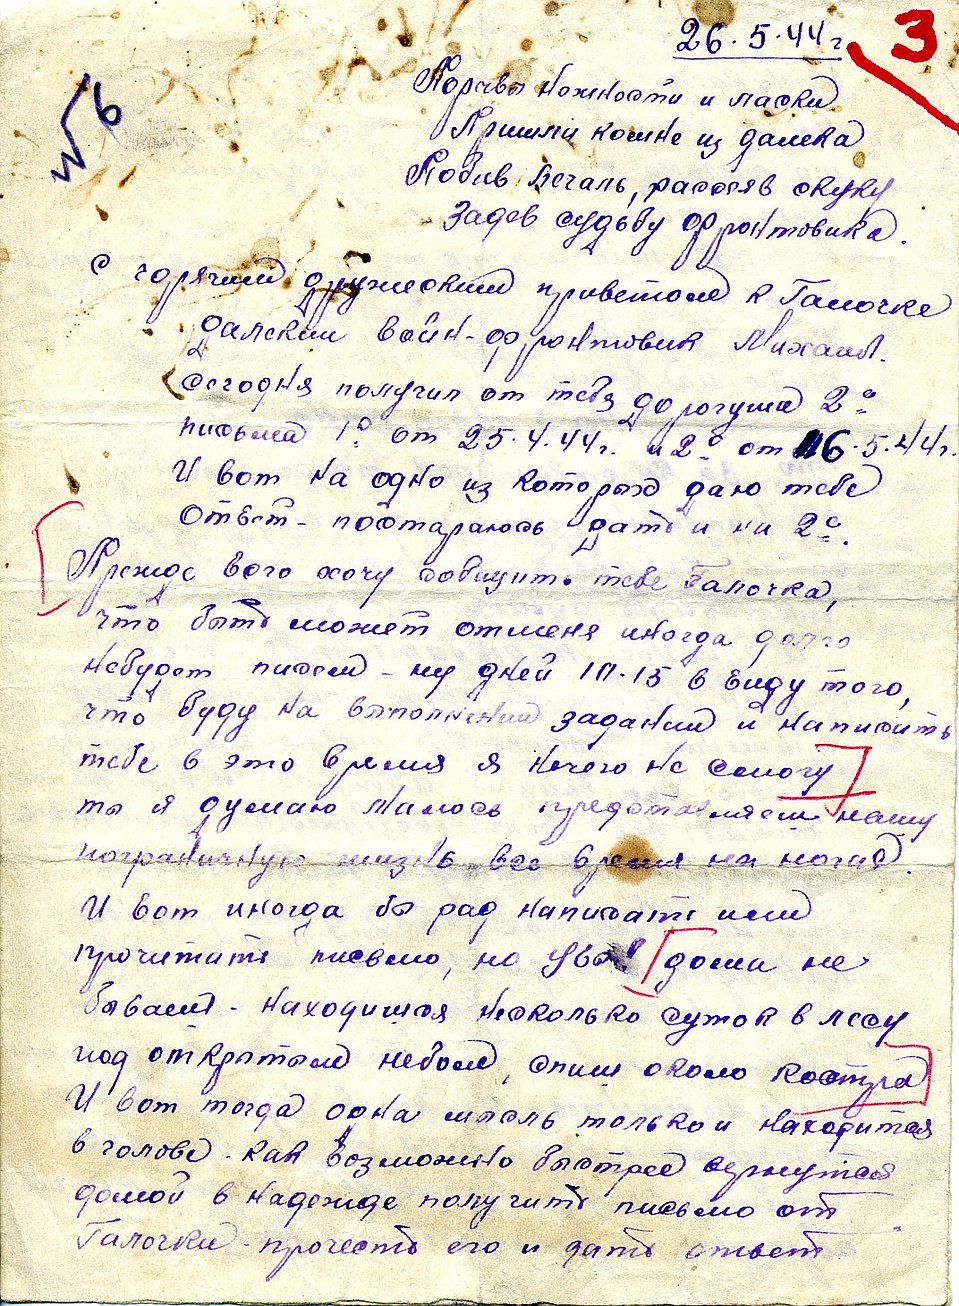 26.5.44г.
3
№6
Порывы нежности и ласки
Пришли комне из далека
Побив печаль, рассеяв скуку
Задев судьбу фронтовика.
С горячим дружеским приветом к Галочке
далекий воин-фронтовик Михаил.
Сегодня получил от тебя дорогуша 2а
письма 1е от 25.4.44г. и 2е от 16.5.44г.
И вот на одно из которых даю тебе
ответ - постараюсь дать и на 2е.
Прежде всего хочу сообщить тебе Галочка,
что быть может отменя иногда долго
небудет писем - ну дней 10-15 в виду того,
что буду на выполнении задании и написать
тебе в это время я нечего не смогу
ты я думаю малось представляеш нашу
пограничную жизнь все время на ногах.
И вот иногда бы рад написать или
прочитать письмо, но увы! дома не
бываеш - находишся несколько суток в лесу
под открытым небом, спиш около костра
И вот тогда одна мысль только и находится
в голове - как возможно быстрее вернутся
домой в надежде получить письмо от
Галочки - прочесть его и дать ответ